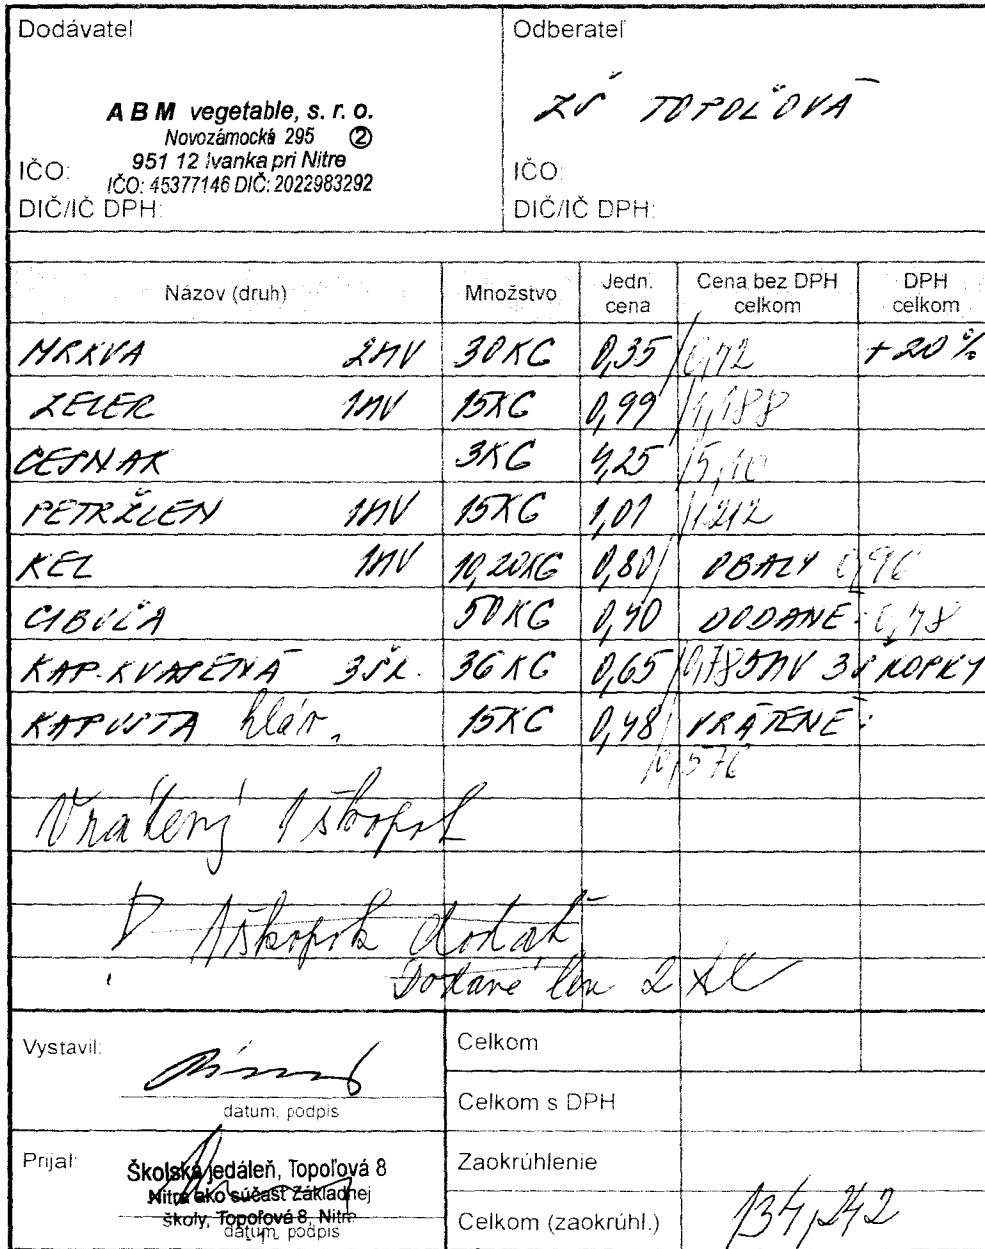 Dodávateľ
Odberateľ
A B M vegetable, s. r. o.
Novozámocká 295 ②
951 12 Ivanka pri Nitre
IČO: 45377146 DIČ: 2022983292
IČO:
DIČ/IČ DPH:
ZŠ TOPOĽOVÁ
IČO:
DIČ/IČ DPH:
Názov (druh) Množstvo Jedn. cena Cena bez DPH celkom DPH celkom
MRKVA 2MV 30KG 0,35 / 0,42 + 20 %
ZELER 1MV 15KG 0,99 / 1,188
CESNAK 3KG 4,25 / 5,10
PETRŽLEN 1MV 15KG 1,01 / 1,212
KEL 1MV 10,20KG 0,80 / OBALY 0,96
CIBUĽA 50KG 0,40 DODANÉ: 0,48
KAP. KVASENÁ 3ŠK. 36KG 0,65 / 0,78 5MV 3ŠKOPKY
KAPUSTA hláv. 15KG 0,48 / VRÁTENÉ:
0,576
Vrátený 1 škopok
1 škopok dodať
Dodané len 2
Vystavil:
datum, podpis
Celkom
Celkom s DPH
Prijal:
Školská jedáleň, Topoľová 8
Nitra ako súčasť Základnej
školy, Topoľová 8, Nitra
datum, podpis
Zaokrúhlenie
Celkom (zaokrúhl.) 134,242